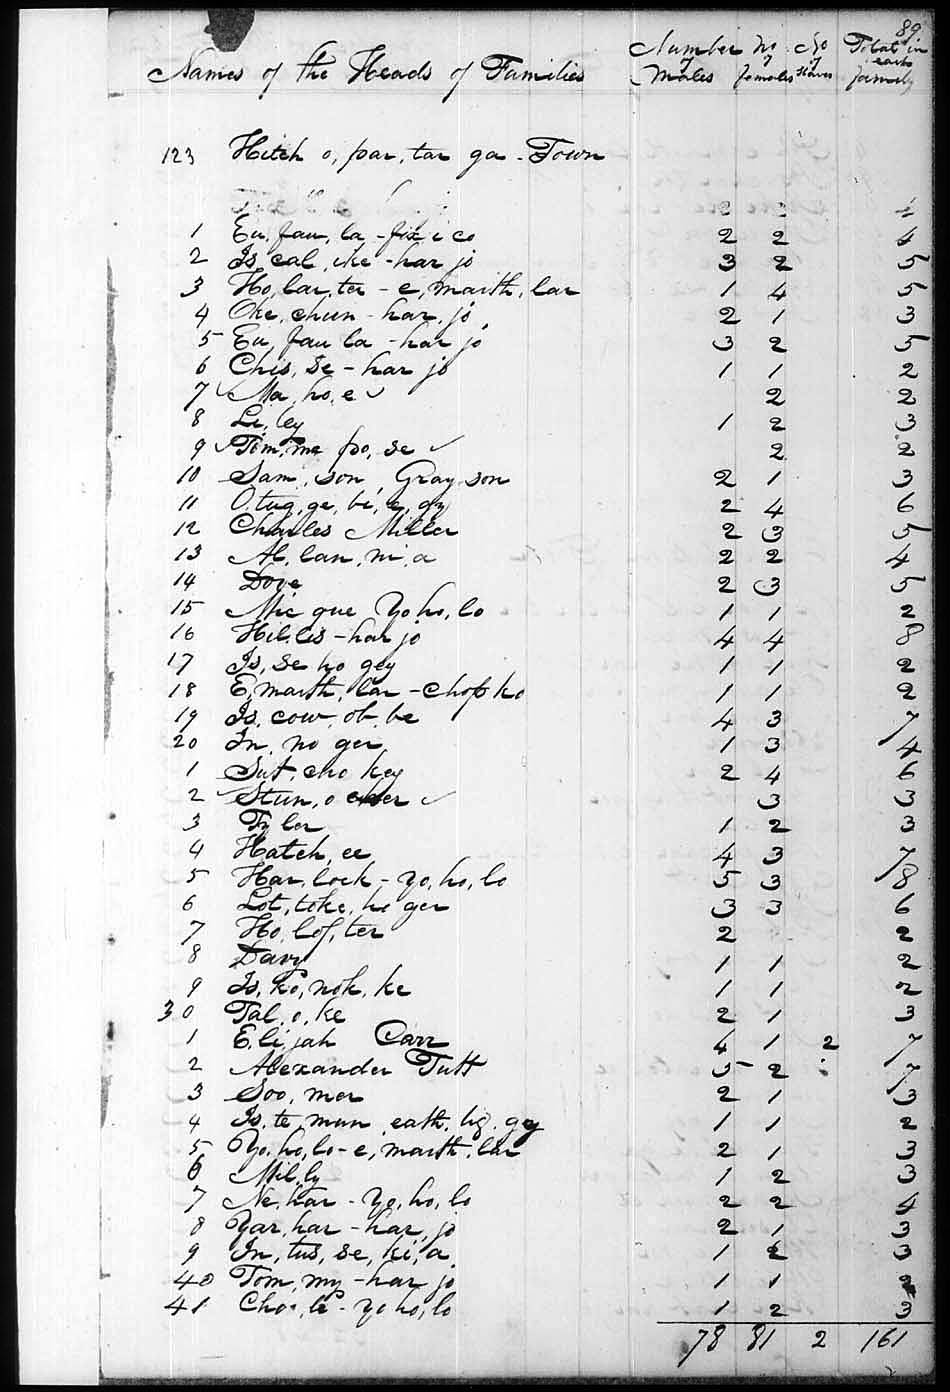 89
Names of the Heads of Families Number of Males No of females No of Slaves Total in each family
123 Hitch o, par, tar ga - Town
2 4
1 Eu, fau, la - fix i co 2 2 4
2 Is cal, che - har jo 3 2 5
3 Ho, lar, ter - e, marth, lar 1 4 5
4 Oke, chun - har, jo 2 1 3
5 Eu, fau la - har jo 3 2 5
6 Chis, se - har jo 1 1 2
7 Ma, ho, e 2 2
8 Li, ley 1 2 3
9 Tom, me po, se 2 2
10 Sam, son, Gray son 2 1 3
11 O. tug, ge, be, e, gy 2 4 6
12 Charles Miller 2 3 5
13 Al, lan, ni, a 2 2 4
14 Dove 2 3 5
15 Mic que Yo ho, lo 1 1 2
16 Hil, lis - har jo 4 4 8
17 Is, se ho gey 1 1 2
18 E, marth, lar - chop ko 1 1 2
19 Is, cow, ob, be 4 3 7
20 In, no ger 1 3 4
1 Sut, cho key 2 4 6
2 Stun, o cher 3 3
3 Ty ler 1 2 3
4 Hatch, ee 4 3 7
5 Har, lock - yo, ho, lo 5 3 8
6 Lot, toke, ho ger 3 3 6
7 Ho, lof, ter 2 2
8 Davy 1 1 2
9 Is, ko, nok, ke 1 1 2
30 Tal, o, ke 2 1 3
1 E. li, jah Carr 4 1 2 7
2 Alexander Tutt 5 2 7
3 Soo, mer 2 1 3
4 Is, te, mun, eath, lig, gey 1 1 2
5 Yo, ho, lo - e, marth, lar 2 1 3
6 Mil, ly 1 2 3
7 Ne, har - Yo, ho, lo 2 2 4
8 Yar, har - har, jo 2 1 3
9 In, tus, se, ki, a 1 2 3
40 Tom, my - har jo 1 1 2
41 Cho, le - yo ho, lo 1 2 3
78 81 2 161